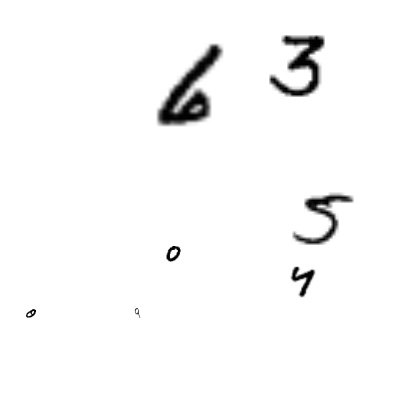 6 3
5
0
4
0 9